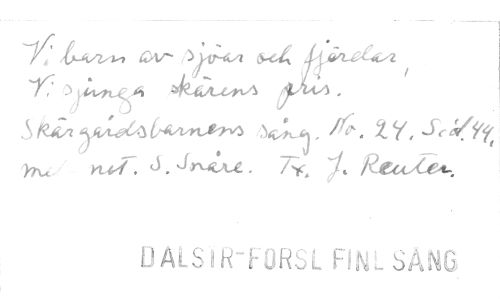 Vi barn av sjöar och fjärdar,
Vi sjunga skärens pris.
Skärgårdsbarnens sång. No. 24. Sid. 44.
med not. S. Snåre. Tx. J. Reuter.
DALSTR-FORSL FINL SÅNG